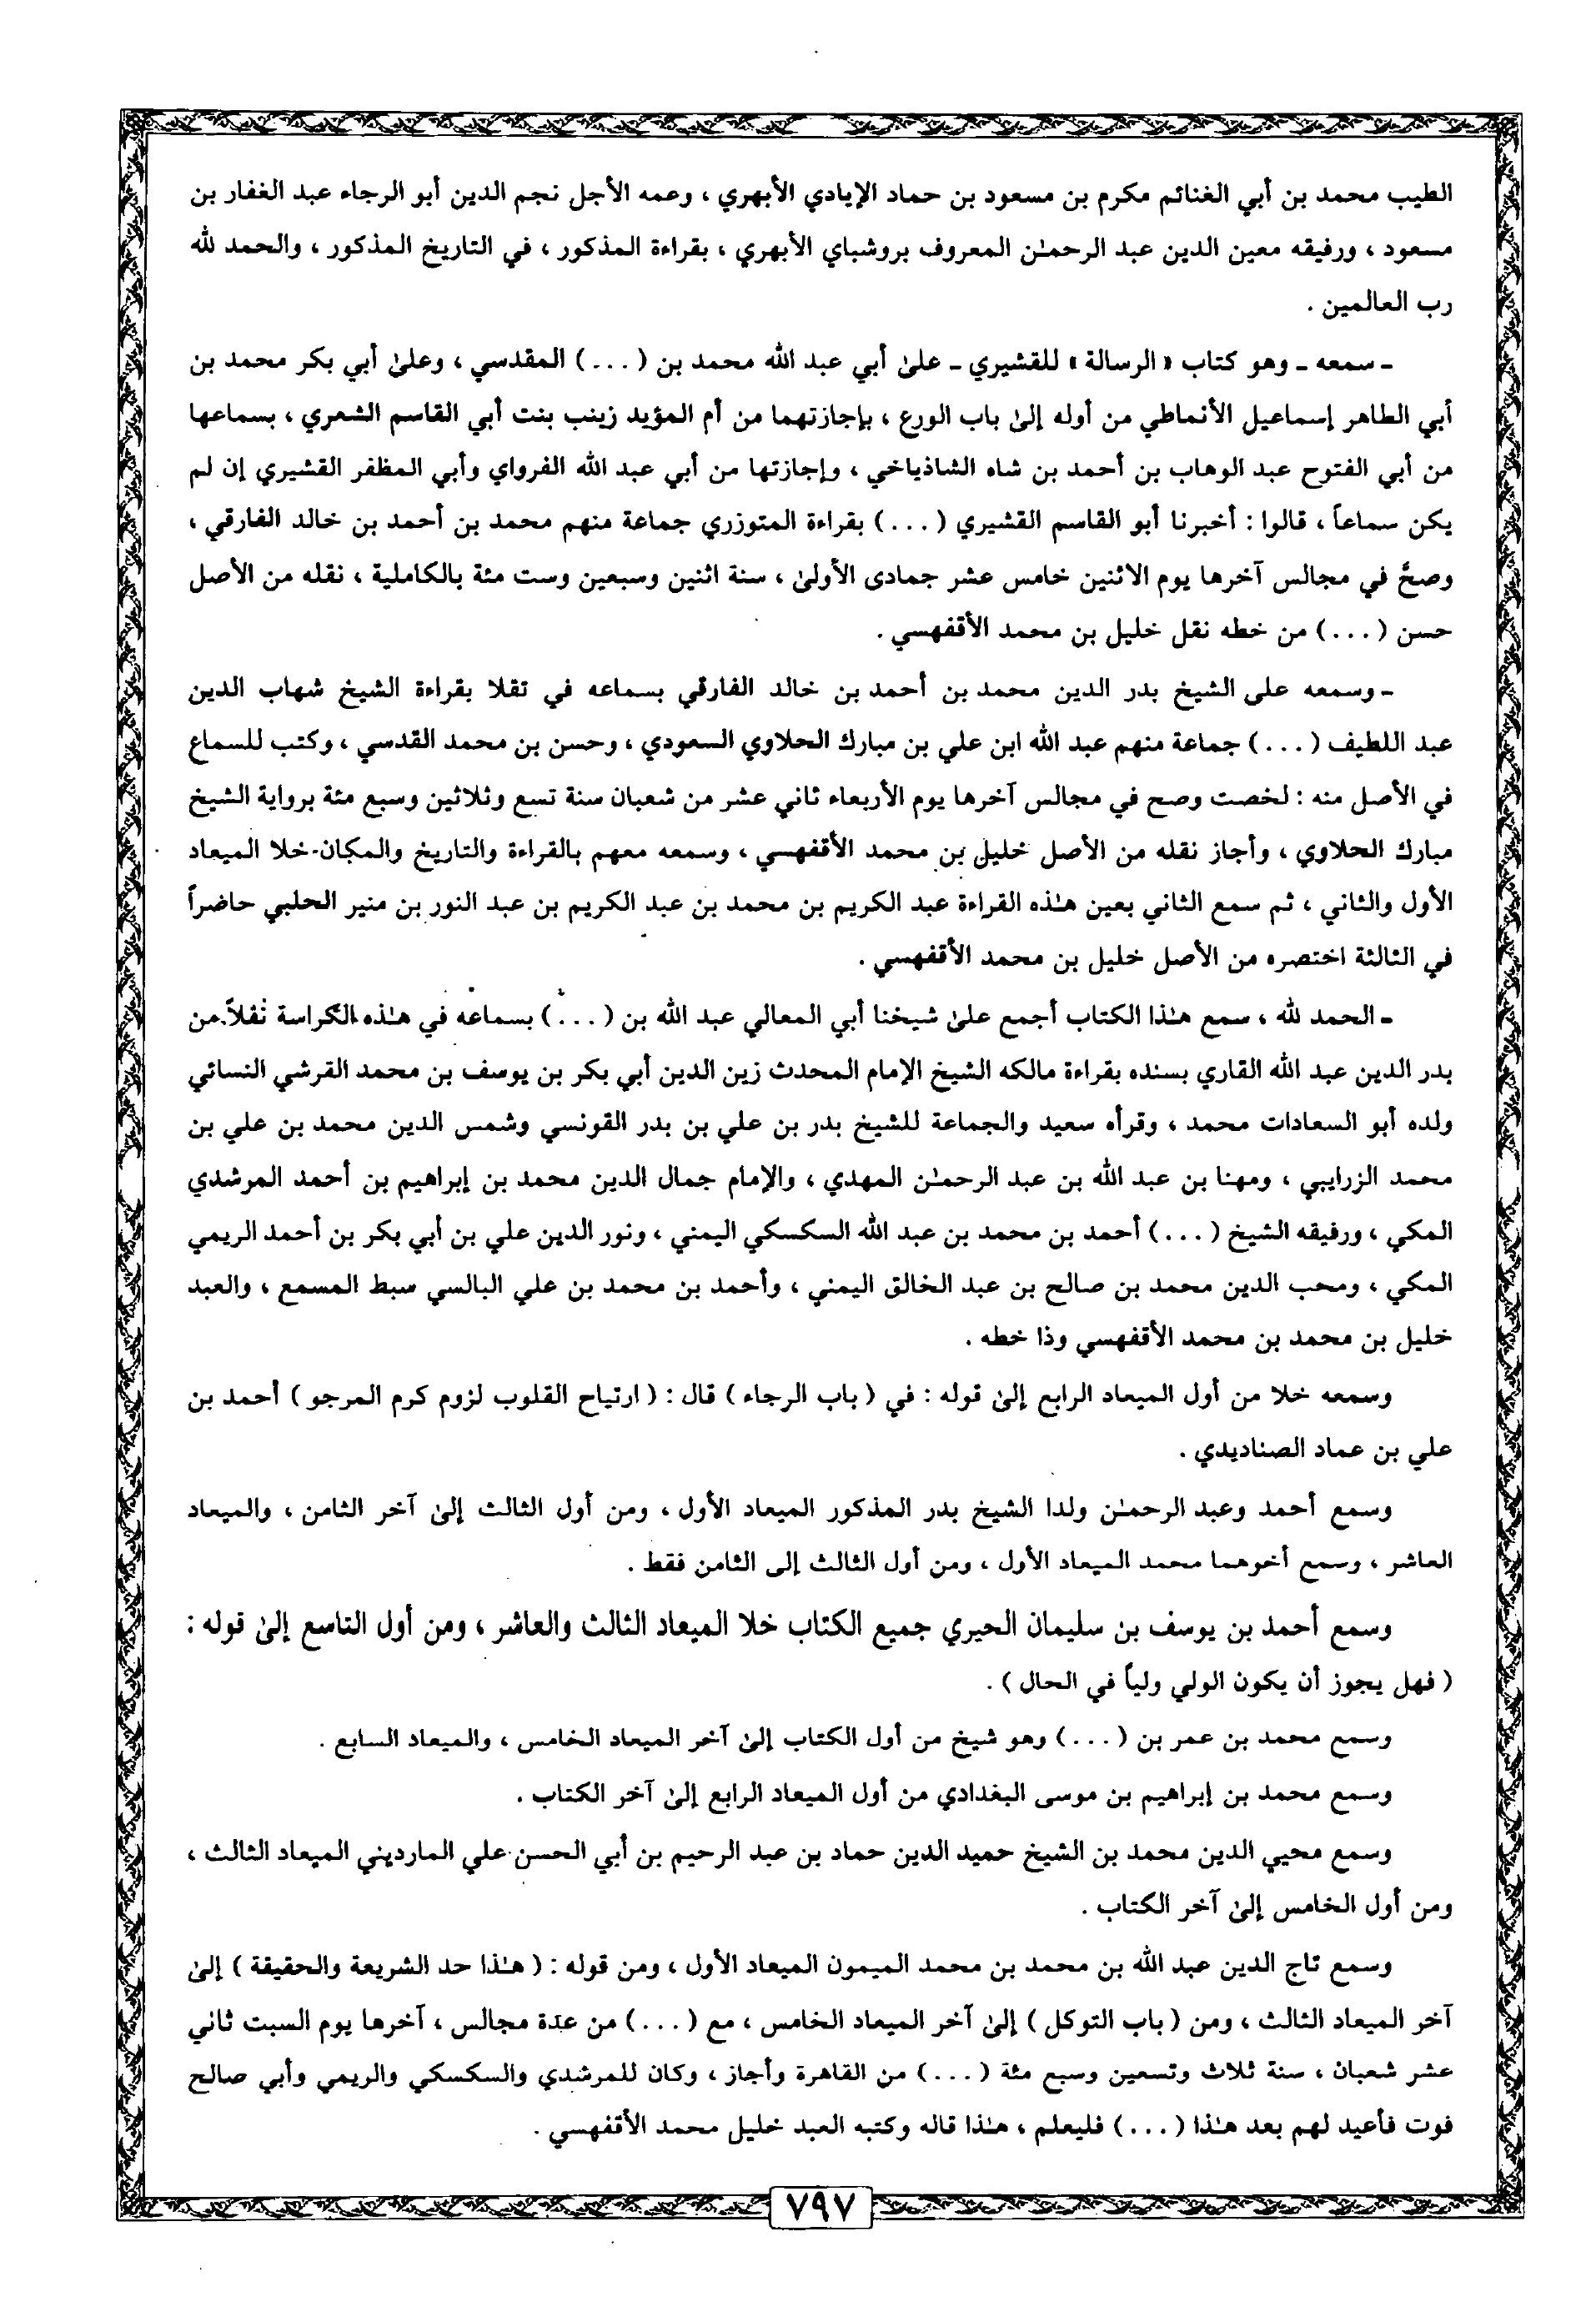 الطيب محمد بن أبي الغنائم مكرم بن مسعود بن حماد الإيادي الأبهري ، وعمه الأجل نجم الدين أبو الرجاء عبد الغفار بن
مسعود ، ورفيقه معين الدين عبد الرحمٰن المعروف بروشباي الأبهري ، بقراءة المذكور ، في التاريخ المذكور ، والحمد لله
رب العالمين .
ـ سمعه ـ وهو كتاب « الرسالة » للقشيري ـ علىٰ أبي عبد الله محمد بن ( . . . ) المقدسي ، وعلىٰ أبي بكر محمد بن
أبي الطاهر إسماعيل الأنماطي من أوله إلىٰ باب الورع ، بإجازتهما من أم المؤيد زينب بنت أبي القاسم الشعري ، بسماعها
من أبي الفتوح عبد الوهاب بن أحمد بن شاه الشاذياخي ، وإجازتها من أبي عبد الله الفرواي وأبي المظفر القشيري إن لم
يكن سماعاً ، قالوا : أخبرنا أبو القاسم القشيري ( . . . ) بقراءة المتوزري جماعة منهم محمد بن أحمد بن خالد الفارقي ،
وصحَّ في مجالس آخرها يوم الاثنين خامس عشر جمادى الأولىٰ ، سنة اثنين وسبعين وست مئة بالكاملية ، نقله من الأصل
حسن ( . . . ) من خطه نقل خليل بن محمد الأقفهسي .
ـ وسمعه على الشيخ بدر الدين محمد بن أحمد بن خالد الفارقي بسماعه في تقلا بقراءة الشيخ شهاب الدين
عبد اللطيف ( . . . ) جماعة منهم عبد الله ابن علي بن مبارك الحلاوي السعودي ، وحسن بن محمد القدسي ، وكتب للسماع
في الأصل منه : لخصت وصح في مجالس آخرها يوم الأربعاء ثاني عشر من شعبان سنة تسع وثلاثين وسبع مئة برواية الشيخ
مبارك الحلاوي ، وأجاز نقله من الأصل خليل بن محمد الأقفهسي ، وسمعه معهم بالقراءة والتاريخ والمكان خلا الميعاد
الأول والثاني ، ثم سمع الثاني بعين هٰذه القراءة عبد الكريم بن محمد بن عبد الكريم بن عبد النور بن منير الحلبي حاضراً
في الثالثة اختصره من الأصل خليل بن محمد الأقفهسي .
ـ الحمد لله ، سمع هٰذا الكتاب أجمع علىٰ شيخنا أبي المعالي عبد الله بن ( . . . ) بسماعه في هٰذه الكراسة نقلاً من
بدر الدين عبد الله القاري بسنده بقراءة مالكه الشيخ الإمام المحدث زين الدين أبي بكر بن يوسف بن محمد القرشي النسائي
ولده أبو السعادات محمد ، وقرأه سعيد والجماعة للشيخ بدر بن علي بن بدر القونسي وشمس الدين محمد بن علي بن
محمد الزرايبي ، ومهنا بن عبد الله بن عبد الرحمٰن المهدي ، والإمام جمال الدين محمد بن إبراهيم بن أحمد المرشدي
المكي ، ورفيقه الشيخ ( . . . ) أحمد بن محمد بن عبد الله السكسكي اليمني ، ونور الدين علي بن أبي بكر بن أحمد الريمي
المكي ، ومحب الدين محمد بن صالح بن عبد الخالق اليمني ، وأحمد بن محمد بن علي البالسي سبط المسمع ، والعبد
خليل بن محمد بن محمد الأقفهسي وذا خطه .
وسمعه خلا من أول الميعاد الرابع إلىٰ قوله : في ( باب الرجاء ) قال : ( ارتياح القلوب لزوم كرم المرجو ) أحمد بن
علي بن عماد الصناديدي .
وسمع أحمد وعبد الرحمٰن ولدا الشيخ بدر المذكور الميعاد الأول ، ومن أول الثالث إلىٰ آخر الثامن ، والميعاد
العاشر ، وسمع أخوهما محمد الميعاد الأول ، ومن أول الثالث إلى الثامن فقط .
وسمع أحمد بن يوسف بن سليمان الحيري جميع الكتاب خلا الميعاد الثالث والعاشر ، ومن أول التاسع إلىٰ قوله :
( فهل يجوز أن يكون الولي ولياً في الحال ) .
وسمع محمد بن عمر بن ( . . . ) وهو شيخ من أول الكتاب إلىٰ آخر الميعاد الخامس ، والميعاد السابع .
وسمع محمد بن إبراهيم بن موسى البغدادي من أول الميعاد الرابع إلىٰ آخر الكتاب .
وسمع محيي الدين محمد بن الشيخ حميد الدين حماد بن عبد الرحيم بن أبي الحسن علي المارديني الميعاد الثالث ،
ومن أول الخامس إلىٰ آخر الكتاب .
وسمع تاج الدين عبد الله بن محمد بن محمد الميمون الميعاد الأول ، ومن قوله : ( هٰذا حد الشريعة والحقيقة ) إلىٰ
آخر الميعاد الثالث ، ومن ( باب التوكل ) إلىٰ آخر الميعاد الخامس ، مع ( . . . ) من عدة مجالس ، آخرها يوم السبت ثاني
عشر شعبان ، سنة ثلاث وتسعين وسبع مئة ( . . . ) من القاهرة وأجاز ، وكان للمرشدي والسكسكي والريمي وأبي صالح
فوت فأعيد لهم بعد هٰذا ( . . . ) فليعلم ، هٰذا قاله وكتبه العبد خليل محمد الأقفهسي .
٧٩٧